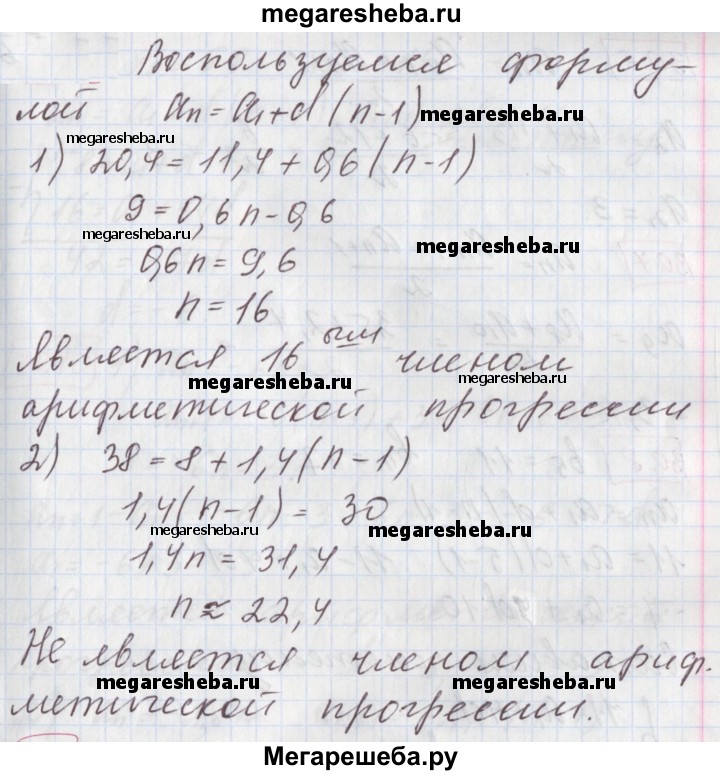 megaresheba.ru
Воспользуемся форму-
лой an = a1 + d(n-1) megaresheba.ru
megaresheba.ru
1) 20,4 = 11,4 + 0,6(n-1)
9 = 0,6n - 0,6
megaresheba.ru
megaresheba.ru
0,6n = 9,6
n = 16
Является 16 ым членом
megaresheba.ru megaresheba.ru
арифметической прогрессии
2) 38 = 8 + 1,4(n-1)
1,4(n-1) = 30
megaresheba.ru megaresheba.ru
1,4n = 31,4
n ≈ 22,4
Не является членом ариф.
megaresheba.ru megaresheba.ru
метической прогрессии.
Мегарешеба.ру